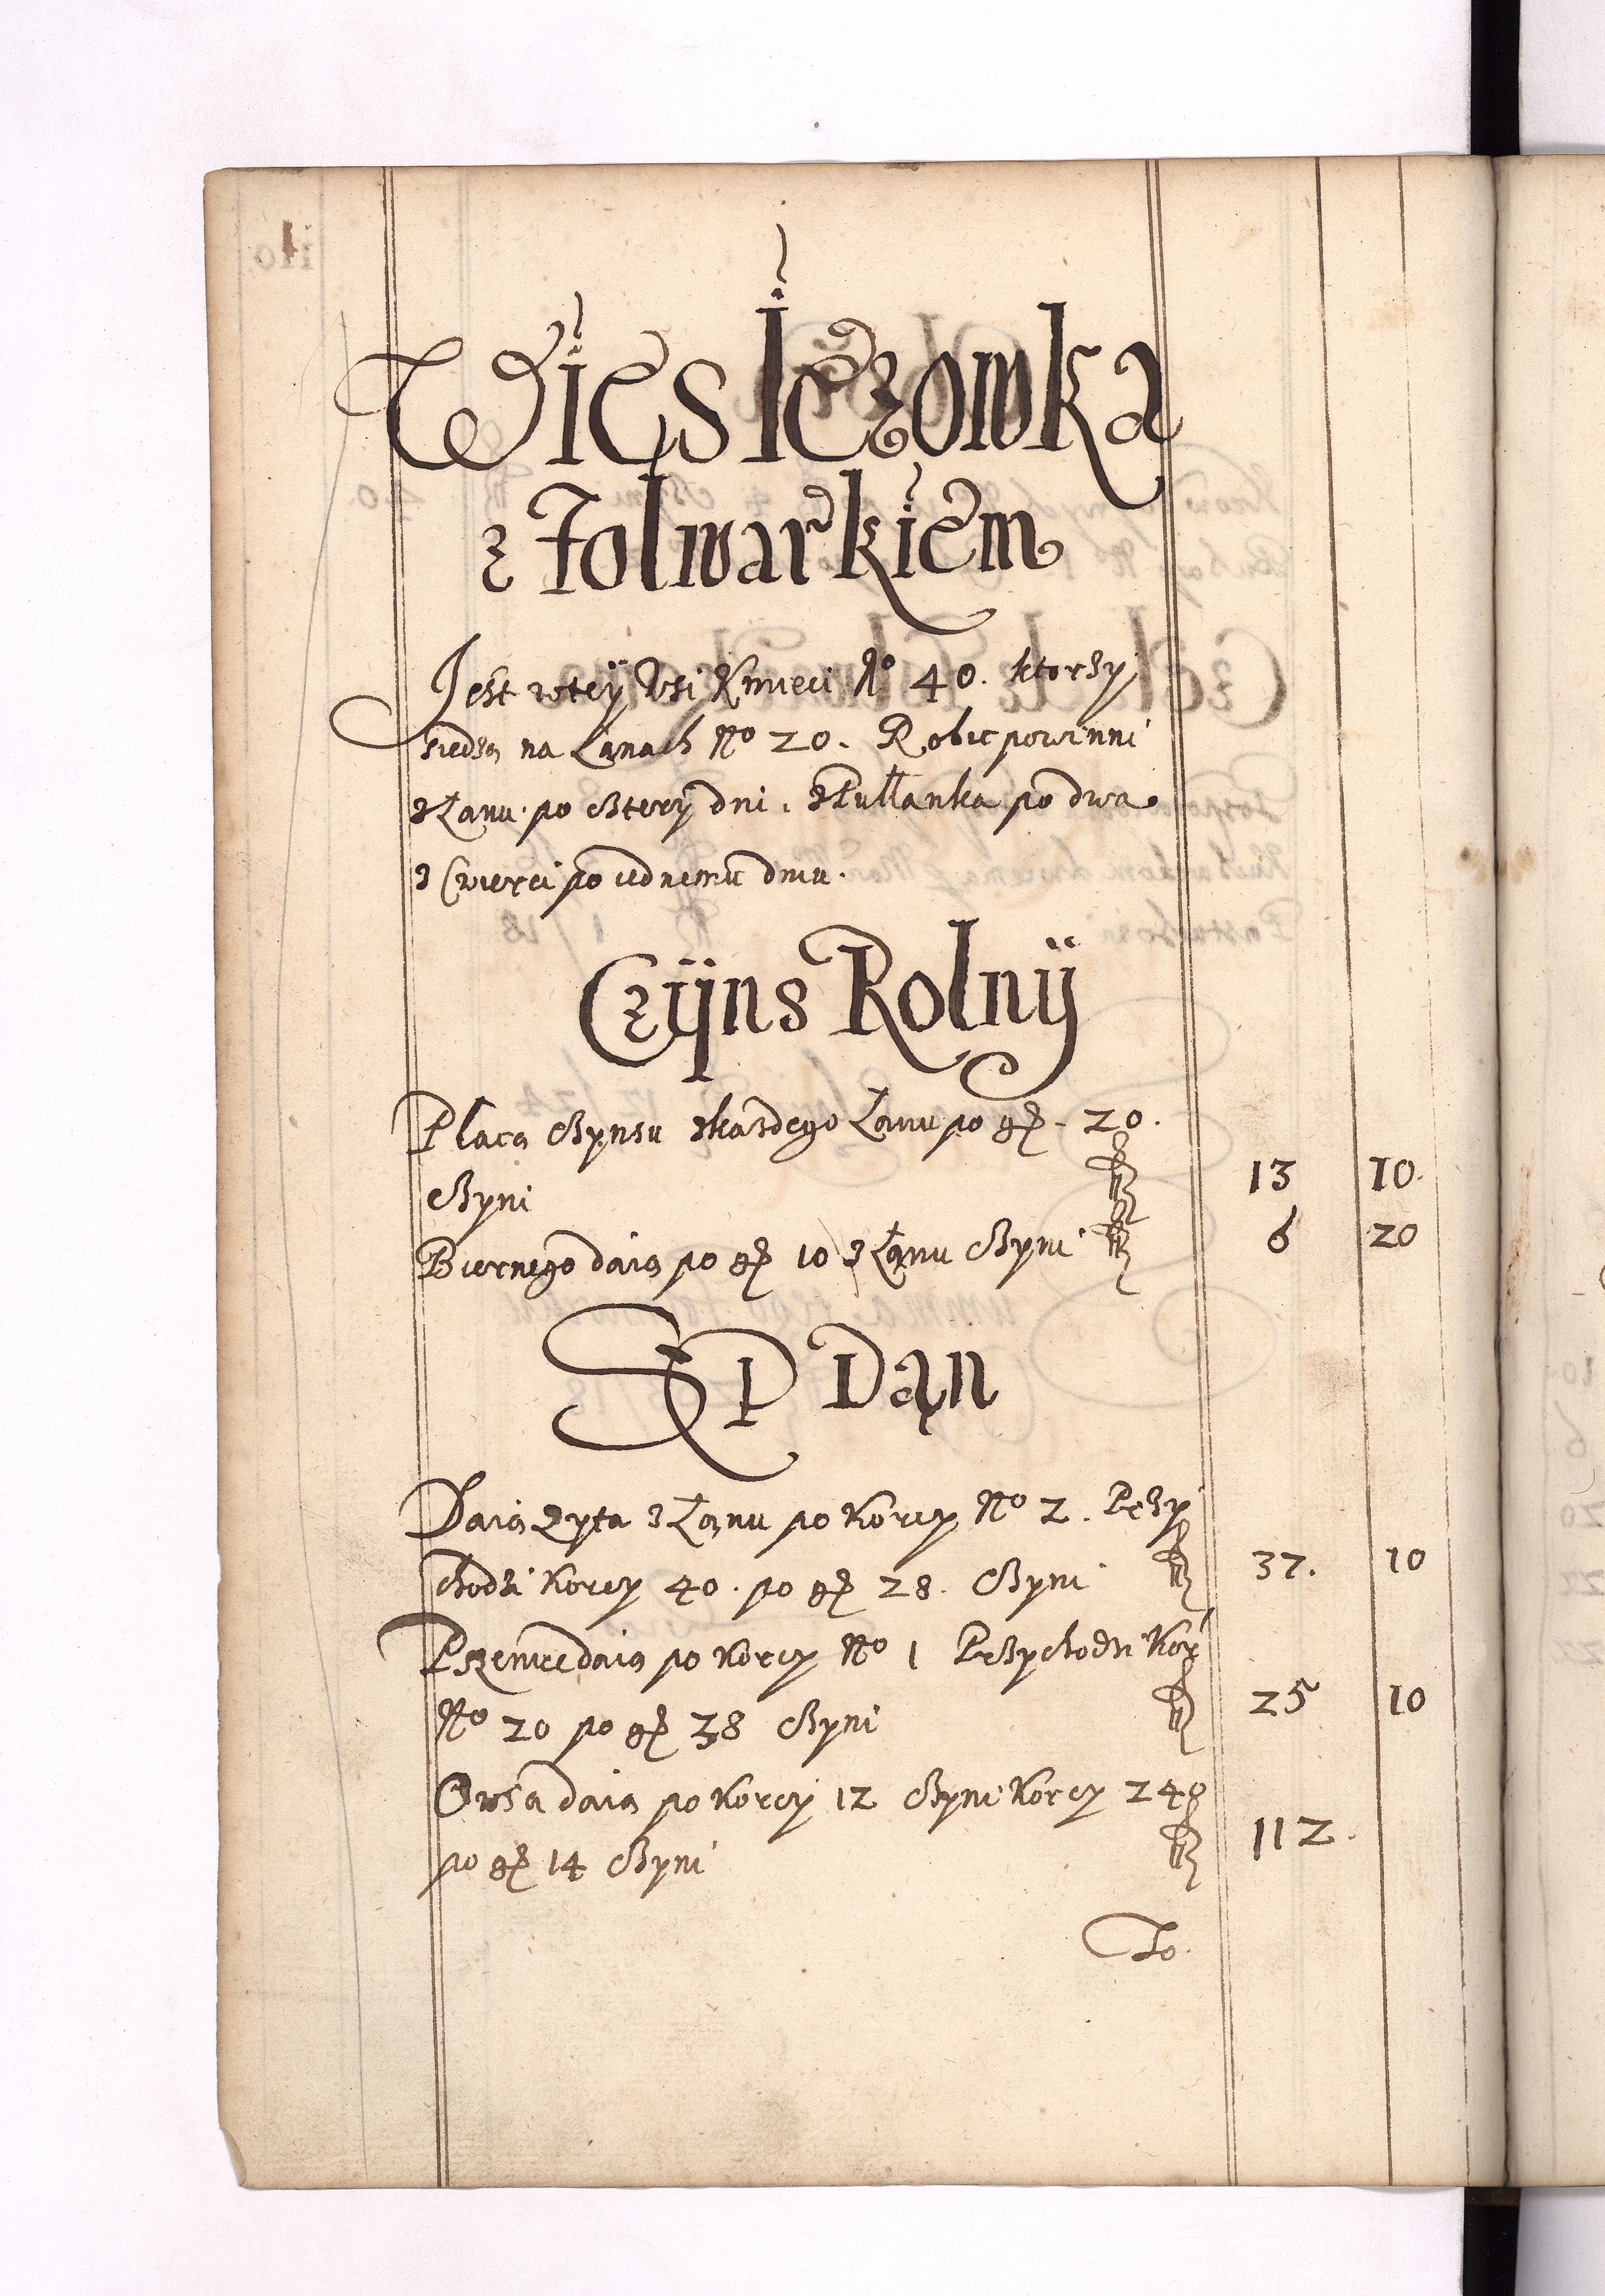 Wies Iezowka
z Folwarkiem
Jest wteÿ Wsi Kmieci No 40. ktorzy
siedzą na Łanach No 20. Robic powinni
z Łanu po cztery dni. z Pułłanka po dwa
z Cwierci po iednemu dniu.
Czÿns Rolnÿ
Płacą Czynsu zkazdego Łanu po gr. 20.
Czyni f 13 10.
Biernego daią po gr 10 z Łanu Czyni f 6 20
SP Dąn
Daią Zyta z Łanu po Korcy No 2. Przy
chodzi Korcy 40. po gr 28. Czyni f 37. 10
Pszenice daią po Korcy No 1 Przychodzi Kor
No 20 po gr 38 Czyni f 25 10
Owsa daią po Korcy 12 Czyni Korcy 240
po gr 14 Czyni f 112.
To.